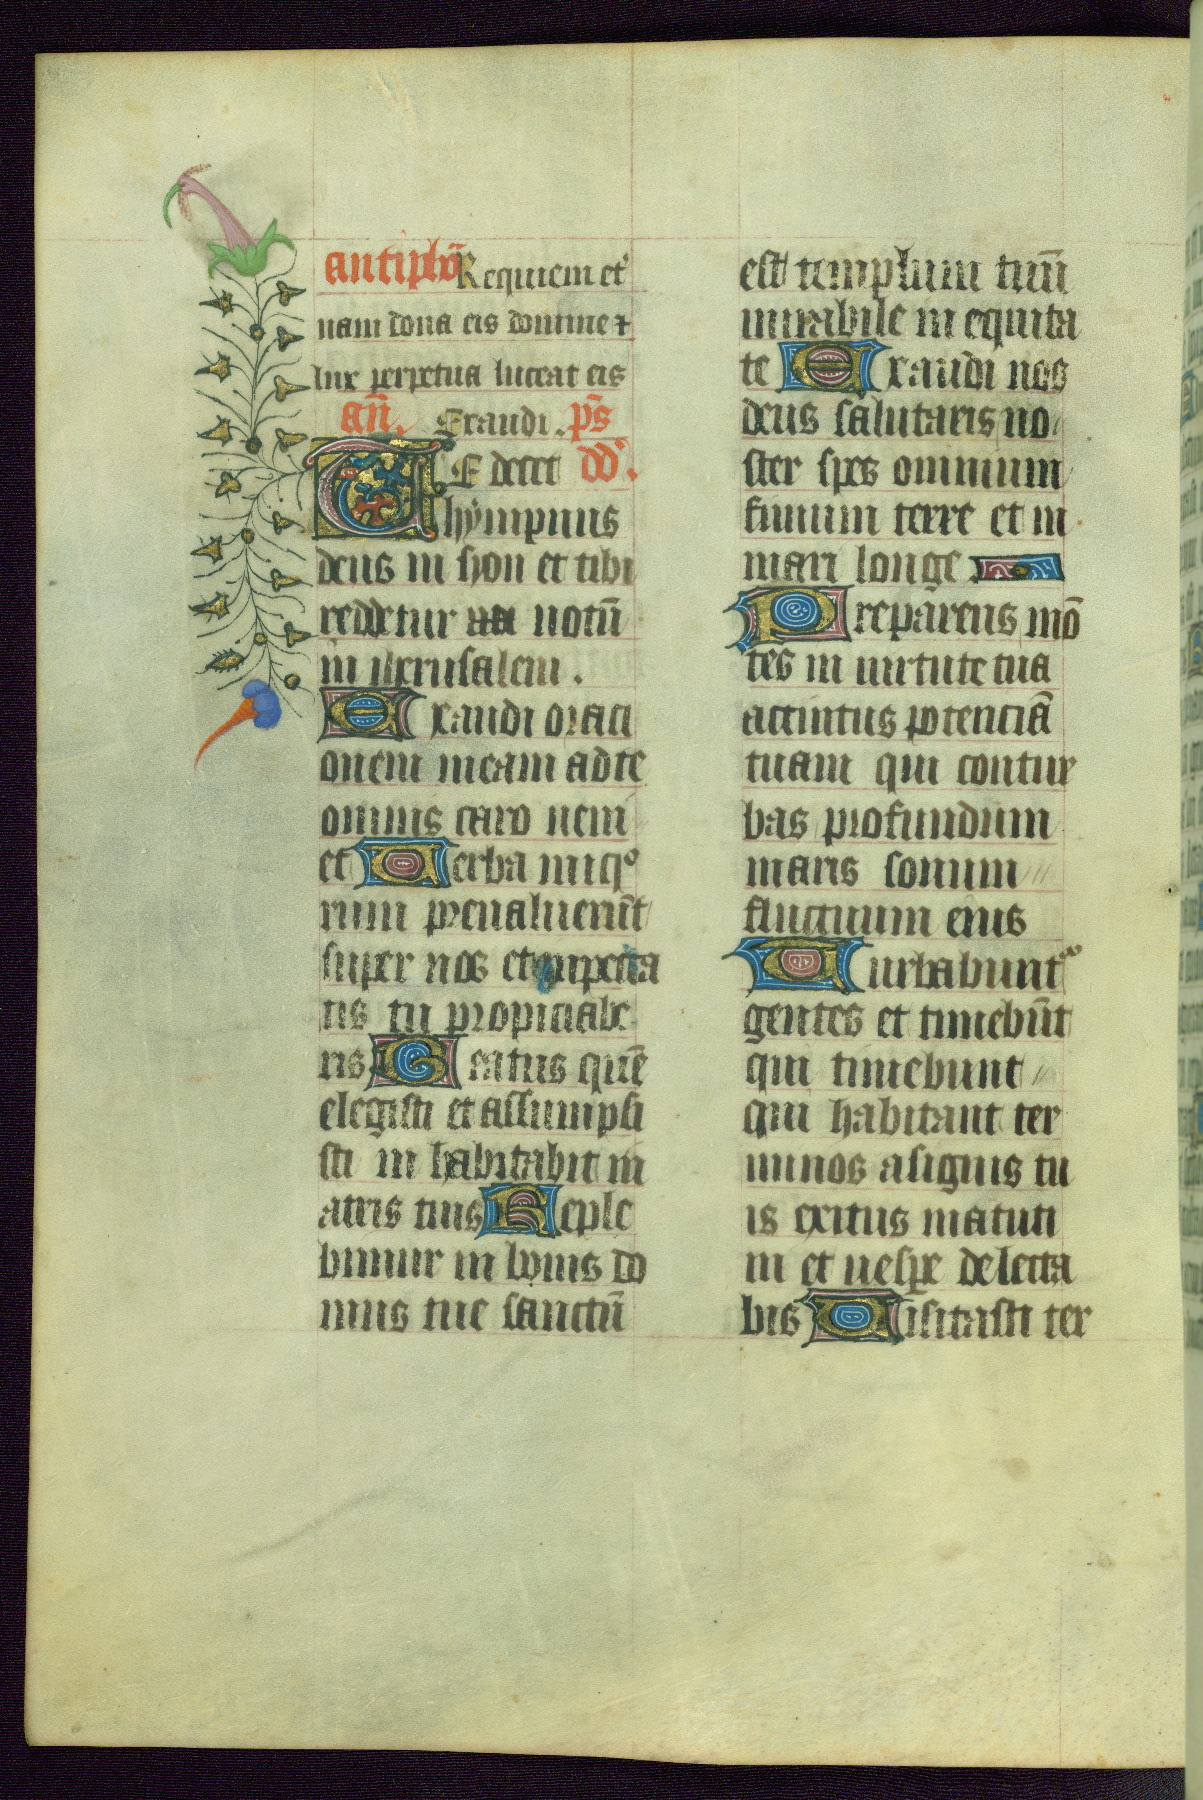 antiphō Requiem et᷑
nam dona eis domine ⁊
lux perpetua luceat eis
an̄. Exaudi. ps̄
TE decet dd̓.
hẏmpnus
deus in syon et tibi
reddetur uotū
in iherusalem.
Exaudi oraci
onem meam ad te
omnis caro ueni
et Uerba iniqͦ
rum preualuerūt
super nos et impieta
tis tu propiciabe
ris Beatus quē
elegisti et assumpsi
sti in habitabit in
atris tuis Reple
bimur in bonis do
mus tue sanctū
est templum tuū
mirabile in equita
te Exaudi nos
deus salutaris no
ster spes omnium
finium terre et in
mari longe
Preparens mō
tes in uirtute tua
accintus potenciā
tuam qui contur
bas profundum
maris sonum
fluctuum eius
Turbabunt᷑
gentes et timebūt
qui timebunt
qui habitant ter
minos a signis tu
is exitus matuti
ni et uespe delecta
bis Uisitasti ter